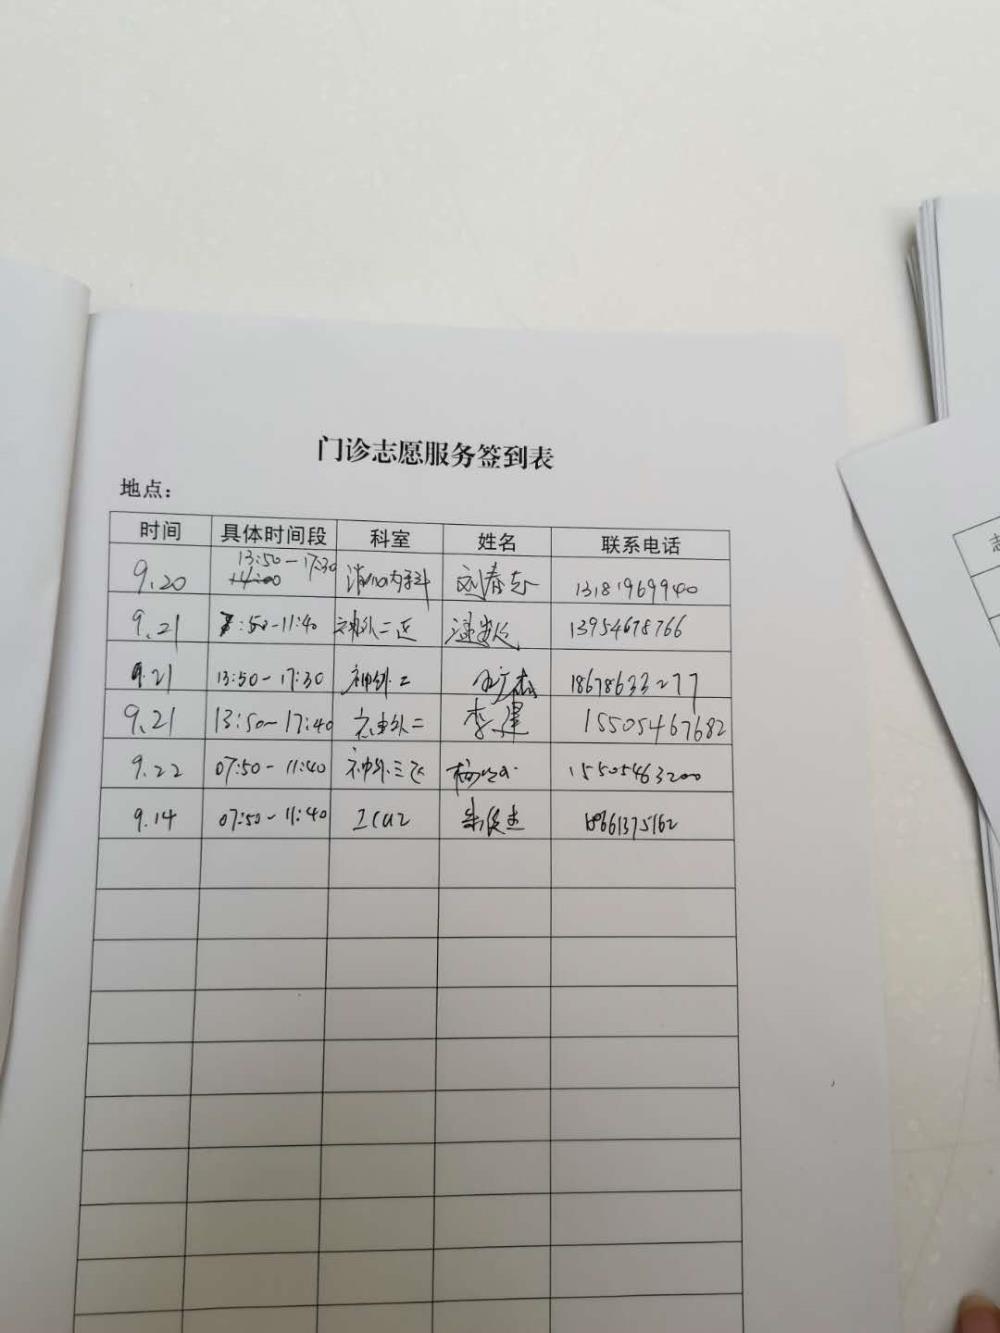 门诊志愿服务签到表
地点：
时间 具体时间段 科室 姓名 联系电话
13:50-17:30
9.20 14:00 消化内科 刘春志 13181969940
9.21 7:50-11:40 神外二区 13954678766
9.21 13:50-17:30 神外二 18678633277
9.21 13:50-17:40 神外二 李健 15505467682
9.22 07:50-11:40 神外三区 15505463200
9.14 07:50-11:40 ICU2 朱俊杰 18661375162
志